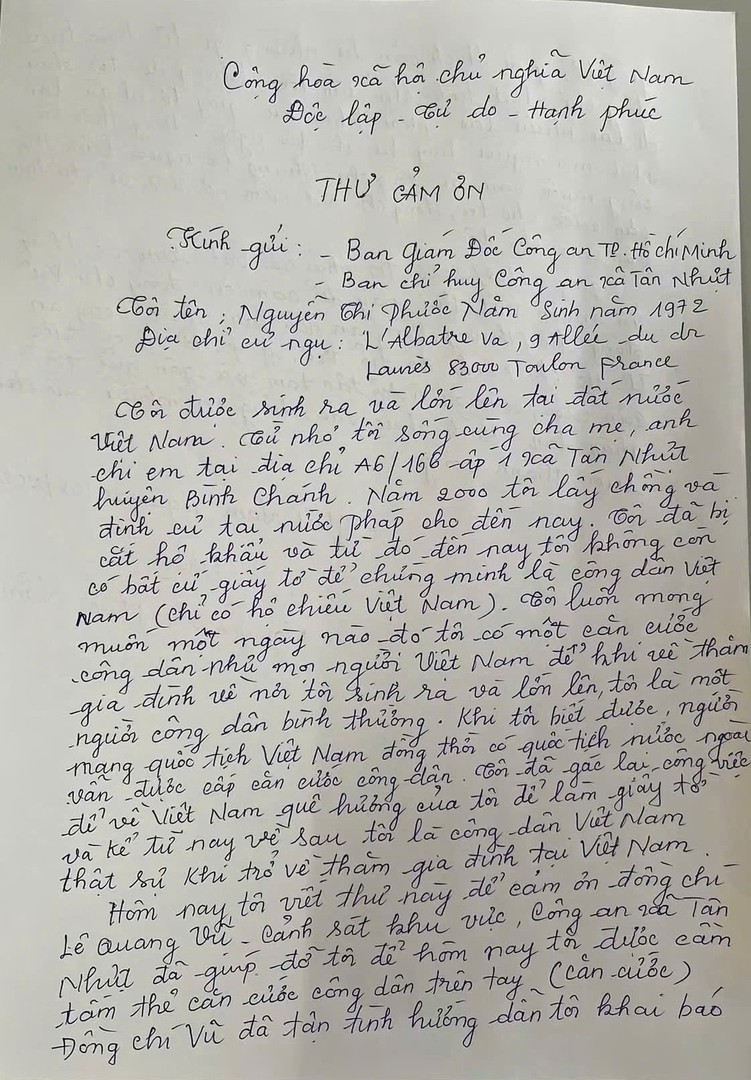 Cộng hoà xã hội chủ nghĩa Việt Nam
Độc lập - Tự do - Hạnh phúc
THƯ CẢM ƠN
Kính gửi : - Ban Giám Đốc Công an TP. Hồ Chí Minh
- Ban chỉ huy Công an xã Tân Nhựt
Tôi tên : Nguyễn Thị Phước Năm Sinh năm 1972
Địa chỉ cư ngụ : L'Albatre Va, 9 Allée du dr
Launès 83000 Toulon France
Tôi được sinh ra và lớn lên tại đất nước
Việt Nam. Từ nhỏ tôi sống cùng cha mẹ, anh
chị em tại địa chỉ A6/166 ấp 1 xã Tân Nhựt
huyện Bình Chánh. Năm 2000 tôi lấy chồng và
định cư tại nước Pháp cho đến nay. Tôi đã bị
cắt hộ khẩu và từ đó đến nay tôi không còn
có bất cứ giấy tờ để chứng minh là công dân Việt
Nam (chỉ có hộ chiếu Việt Nam). Tôi luôn mong
muốn một ngày nào đó tôi có một căn cước
công dân như mọi người Việt Nam để khi về thăm
gia đình về nơi tôi sinh ra và lớn lên, tôi là một
người công dân bình thường. Khi tôi biết được, người
mang quốc tịch Việt Nam đồng thời có quốc tịch nước ngoài
vẫn được cấp căn cước công dân. Tôi đã gác lại công việc
để về Việt Nam quê hương của tôi để làm giấy tờ
và kể từ nay về sau tôi là công dân Việt Nam
thật sự khi trở về thăm gia đình tại Việt Nam.
Hôm nay, tôi viết thư này để cảm ơn đồng chí
Lê Quang Vũ - Cảnh sát khu vực, Công an xã Tân
Nhựt đã giúp đỡ tôi để hôm nay tôi được cầm
tấm thẻ căn cước công dân trên tay (căn cước)
Đồng chí Vũ đã tận tình hướng dẫn tôi khai báo